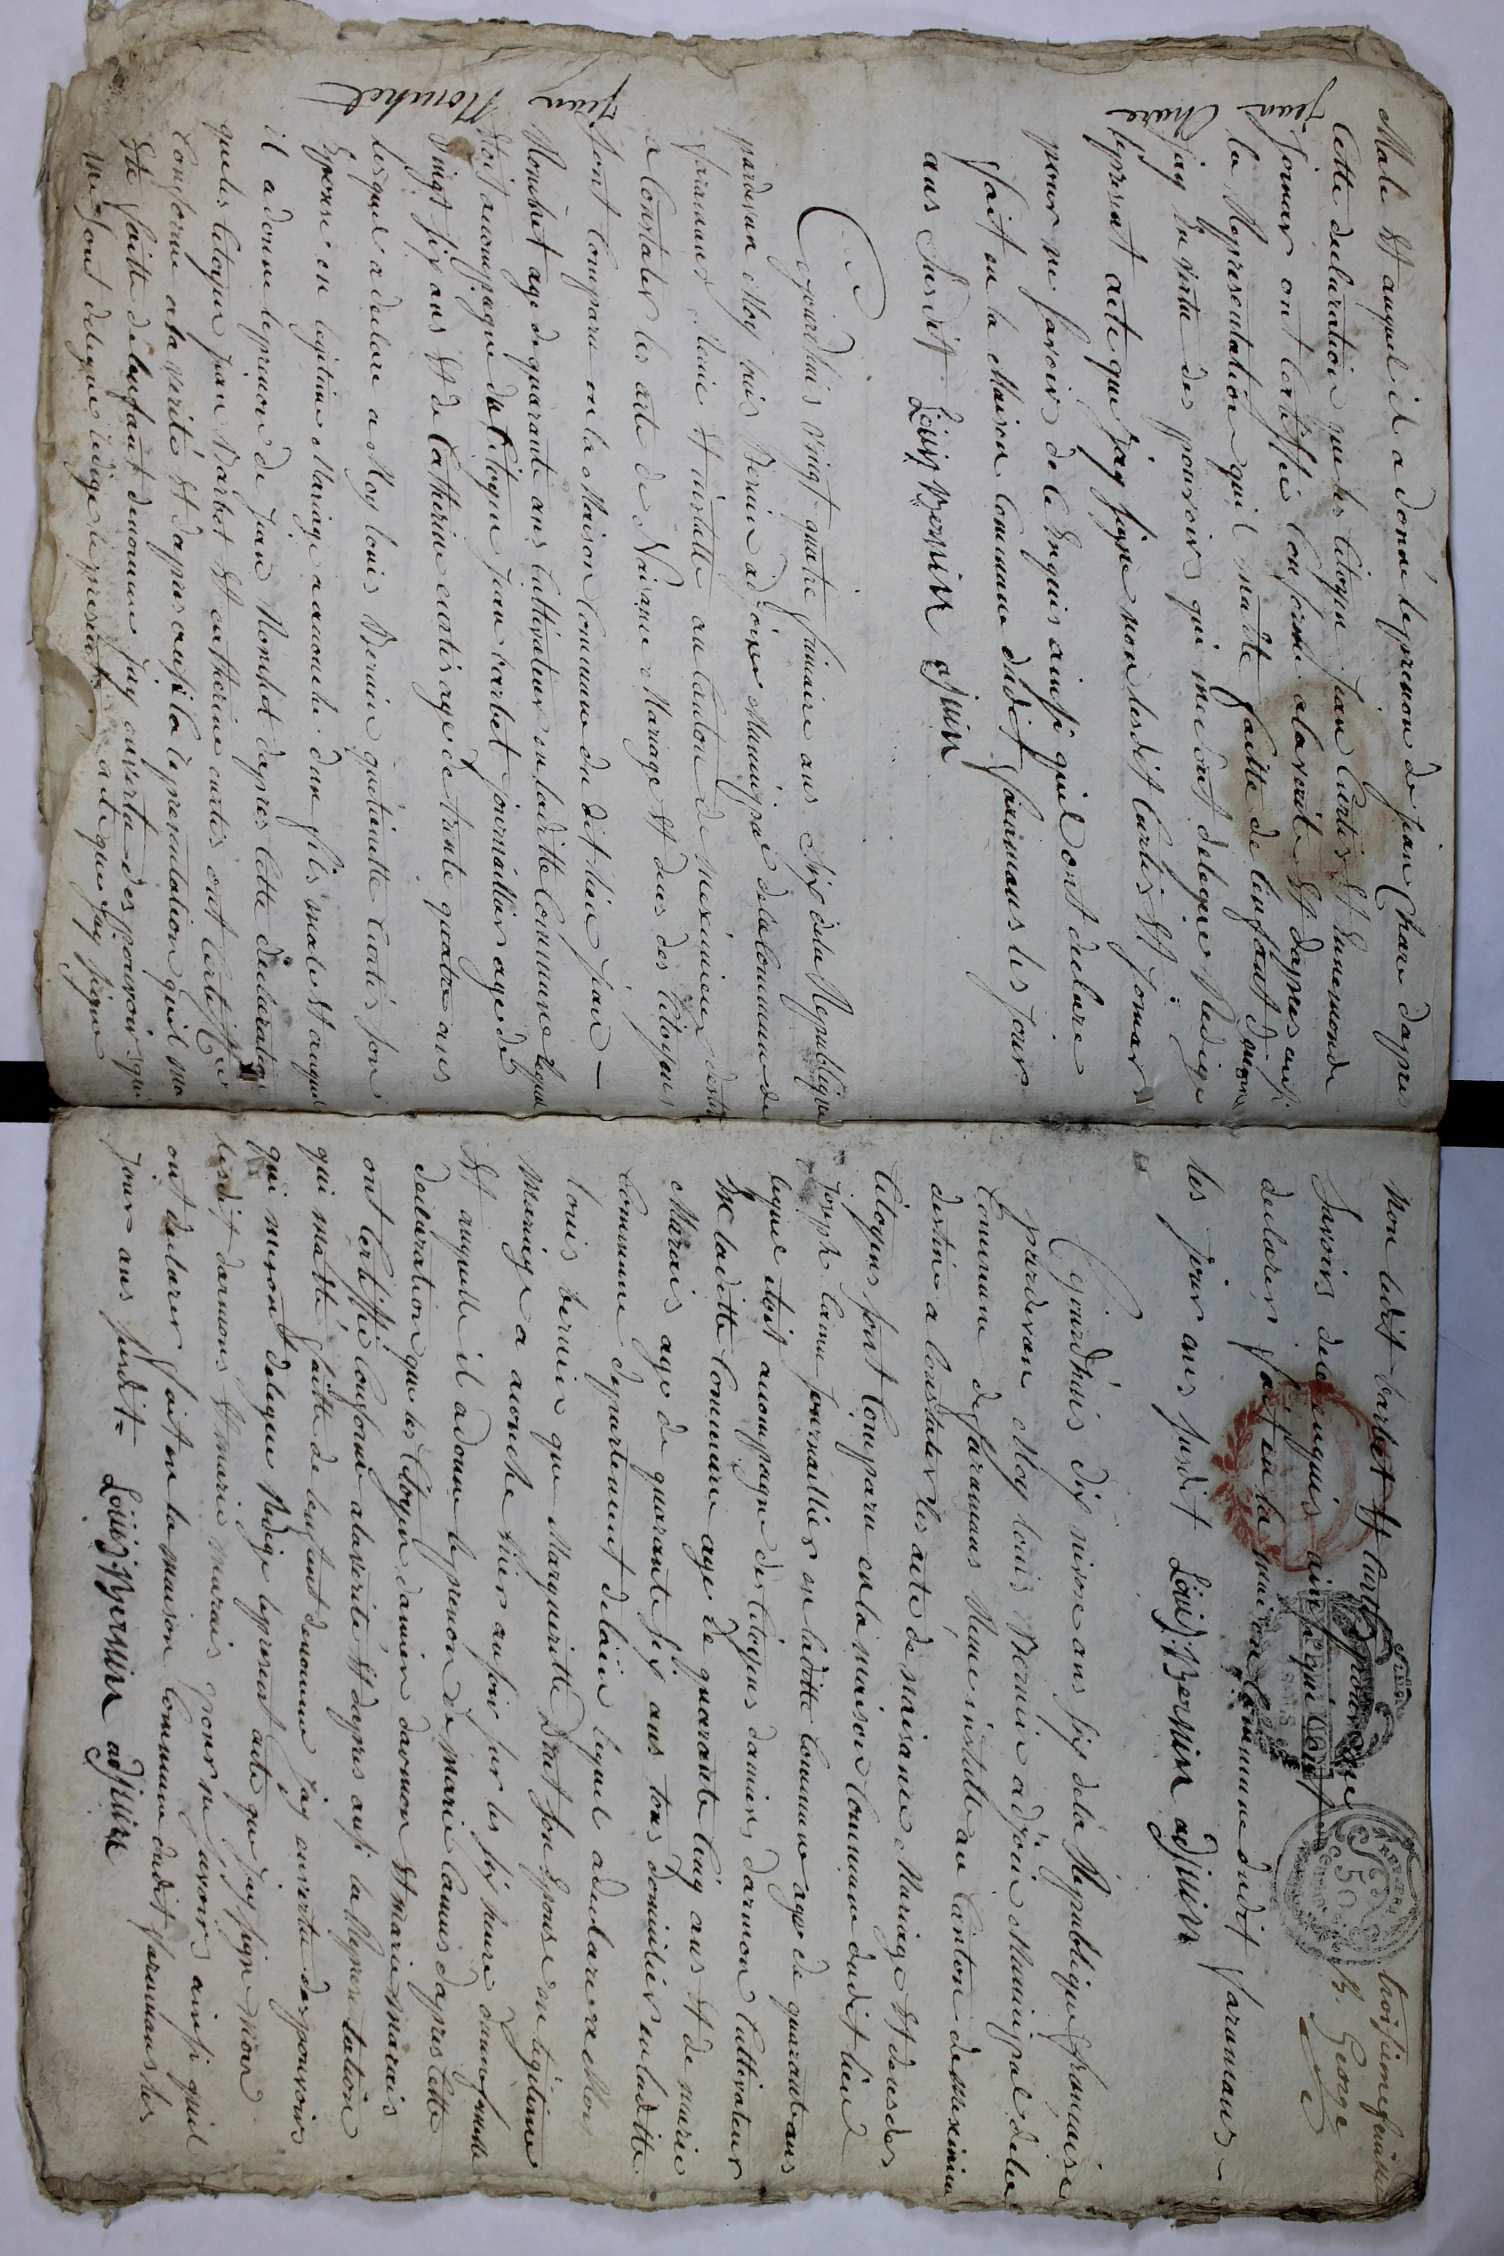 Male et auquel il a doné le prenom de jean Chare dapres
Cette declaration que les citoyen jean Curtis et Enemonde
Jomar ont certiffié conforme alaverite et dapres ausi
la Representation quil ma été faitte de lenfant denome
jay En vertu des pouvoirs qui me ont delegue Redige
lepresat acte que jay signe non lesdit Curtis et jomar
pour ne savoir de le Enquis ainsi quil ont declare
fait en la Maison Commune dudit faramans les jour
ans Susdit Loüis Bernin ajuin
jean Chare
Cejourdhuis vingt quatre frimaire ans Six dela Republique
pardevan Moy louis Bernin adjoint Municipal dela Commune de
faramans élue et instalé au Canton de Meximieux destiné
a Constater les acte de Naisance Mariage et deces des Citoyens
sont Comparu en la Maison Commune du dit lieu jean
Monchet age de quarante ans Cultivateur en ladite Commune lequel
étoit accompagne du Citoyen jean barbet journaillier age de
vingt six ans et de Catherine curtis age de trante quatre ans
lesquel a declare a Moy louis Bernin quétiennette Curtis son
Epouse en legitime Mariage a acouché dun fils male et auquel
il a donne le prenom de jean Monchet dapres Cette declaration
que les Citoyen jean Barbet et catherine curtis ont certiffié
Conforme ala verité et dapres ausi la Representation quil ma
été faitte de lenfant denomme jay envertu des pouvoirs qui
me sont delegue redige le present acte que jay signe
jean Monchet
non ledit barbet et Curtis pour ne
Savoirs de le enquis ainsi qui lont
declarer fait en la maison Commune dudit faramans
les jour ans susdit Loüis Bernin adjuin
troisieme feuillet
George
50
Cejourdhuis dix nivose ans six dela Republique francaise
pardevan Moy louis Bernin adjoin Municipal dela
Commune de faramans élue instalé au Canton de meximieu
destine a Constater les acte de naisance Mariage et deces des
Citoyens sont Comparu en la maison Commune dudit lieu
joseph Camu journaillier en ladite Commune age de quarante ans
lequel étoit acompagne des Citoyens damien darmon Cultivateur
de ladite Commune age de quarante Cinq ans et de marie
Marais age de quarante six ans tous domicilier en ladite
Commune departement delain lequel a declare a Moi
louis bernin que Marguerite son Epouse en legitime
Mariage a acouche hier au soir sur les six heure dune femelle
et auquelle il a donne le prenom de Marie Camus dapres Cette
declaration que les Citoyen damien darmon et marie Marais
ont certiffié Conforme alaverité et dapres ausi la Representation
qui ma été faitte de lenfant denomme jay envertu des pouvoirs
qui me sont delegue Redige lepresent acte que jay signe Non
lesdit darmons et marie marais pour ne savoirs ainsi quil
ont declarer fait en la maison Commune dudit faramans les
jour ans susdit Loüis Bernin adjuin